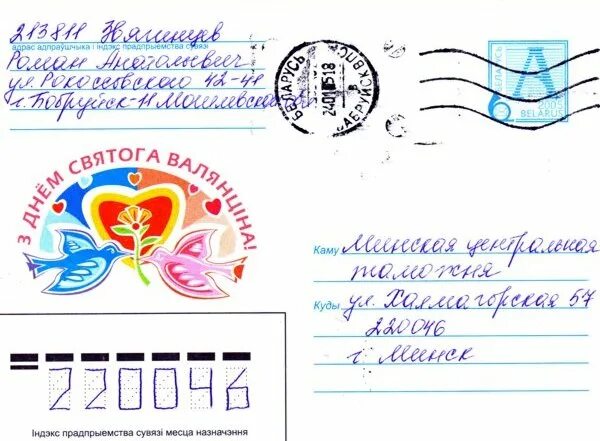 213811 Звягинцев
адрас адпраўшчыка і індэкс прадпрыемства сувязі
Роман Анатольевич
ул. Рокоссовского 42-41
г. Бобруйск-11 Могилевской
БЕЛАРУСЬ
24 01 05 18
БАБРУЙСК ВПС
БЕЛАРУСЬ
A
2005
BELARUS
З ДНЁМ СВЯТОГА ВАЛЯНЦІНА!
Каму Минская центральная
таможня
Куды ул. Халмагорская 57
220046
г. Минск
220046
Індэкс прадпрыемства сувязі месца назначэння